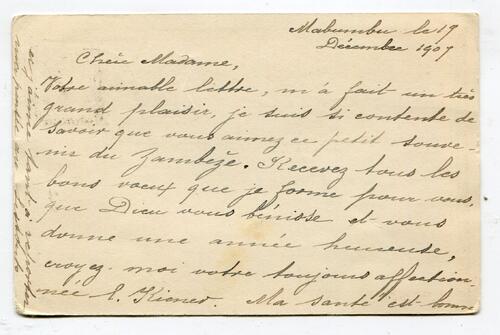 Mabumbu le 19
Décembre 1907
Chère Madame,
Votre aimable lettre, m'a fait un très
grand plaisir, je suis si contente de
savoir que vous aimez ce petit souve-
nir du Zambèze. Recevez tous les
bons voeux que je forme pour vous,
que Dieu vous bénisse et vous
donne une année heureuse,
croyez-moi votre toujours affection-
née E. Kiener. Ma santé est bonne